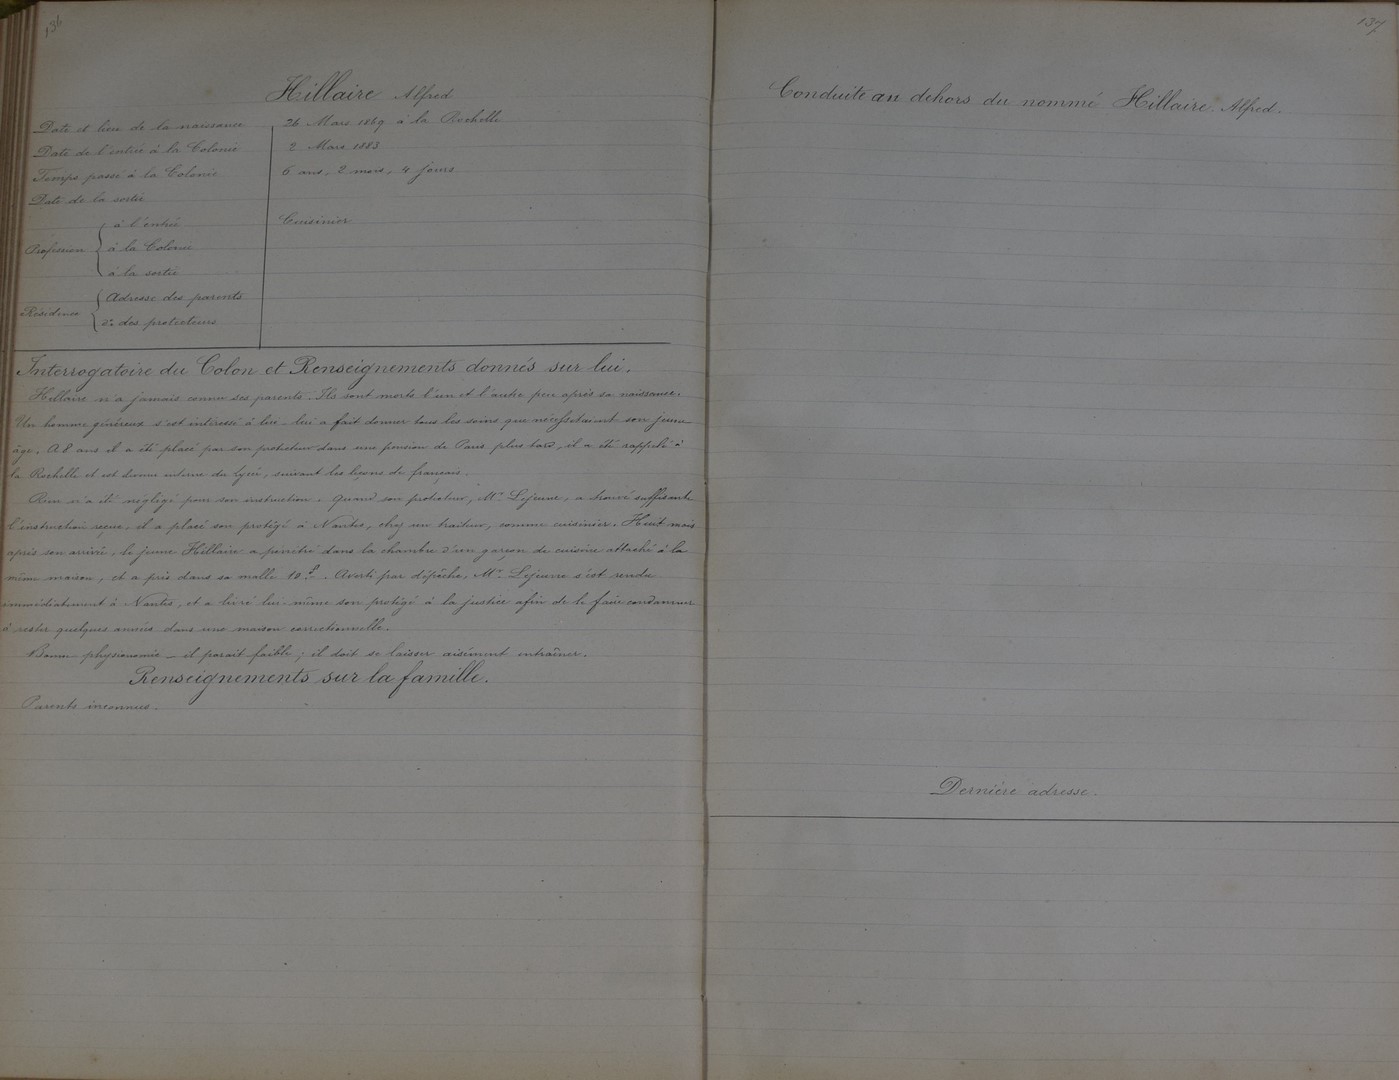 136
Hillaire Alfred
Date et lieu de la naissance 26 Mars 1869 à la Rochelle
Date de l'entrée à la Colonie 2 Mars 1883
Temps passé à la Colonie 6 ans, 2 mois, 4 jours
Date de la sortie
à l'entrée Cuisinier
Profession à la Colonie
à la sortie
Adresse des parents
Résidence
do des protecteurs
Interrogatoire du Colon et Renseignements donnés sur lui.
Hillaire n'a jamais connu ses parents. Ils sont morts l'un et l'autre peu après sa naissance.
Un homme généreux s'est intéressé à lui lui a fait donner tous les soins que nécessitaient son jeune
âge. A 8 ans il a été placé par son protecteur dans une pension de Paris plus tard, il a été rappelé à
la Rochelle et est devenu interne du lycée, suivant les leçons de français.
Rien n'a été négligé pour son instruction. Quand son protecteur, Mr. Lejeune, a trouvé suffisante
l'instruction reçue, il a placé son protégé à Nantes, chez un traiteur, comme cuisinier. Huit mois
après son arrivée, le jeune Hillaire a pénétré dans la chambre d'un garçon de cuisine attaché à la
même maison, et a pris dans sa malle 10 f. Averti par dépêche, Mr. Lejeune s'est rendu
immédiatement à Nantes, et a livré lui-même son protégé à la justice afin de le faire condamner
à rester quelques années dans une maison correctionnelle.
Bonne physionomie _ il parait faible ; il doit se laisser aisément entraîner.
Renseignements sur la famille.
Parents inconnus.
137
Conduite au dehors du nommé Hillaire. Alfred.
Dernière adresse.